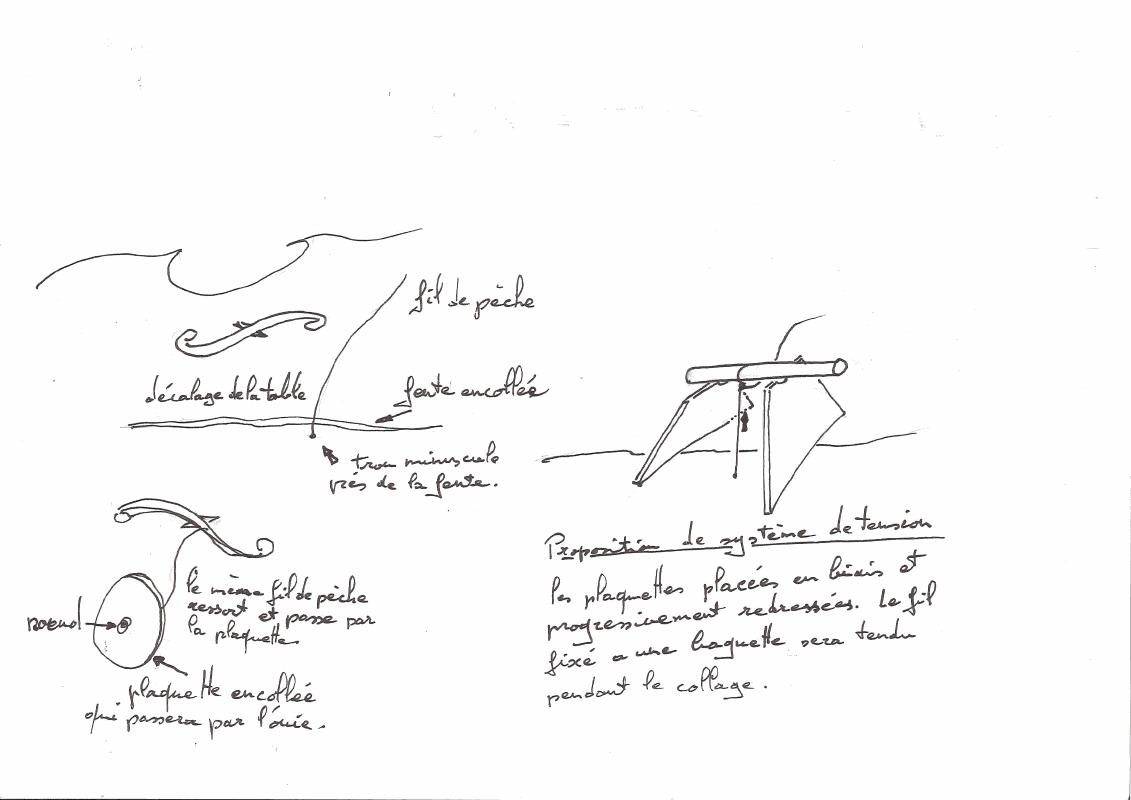 fil de pèche
décalage de la table
fente encollée
trou minuscule
près de la fente.
le même fil de pèche
ressort et passe par
la plaquette
noeud
plaquette encollée
qui passera par l'ouïe.
Proposition de système de tension
les plaquettes placées en biais et
progressivement redressées. Le fil
fixé a une baguette sera tendu
pendant le collage.